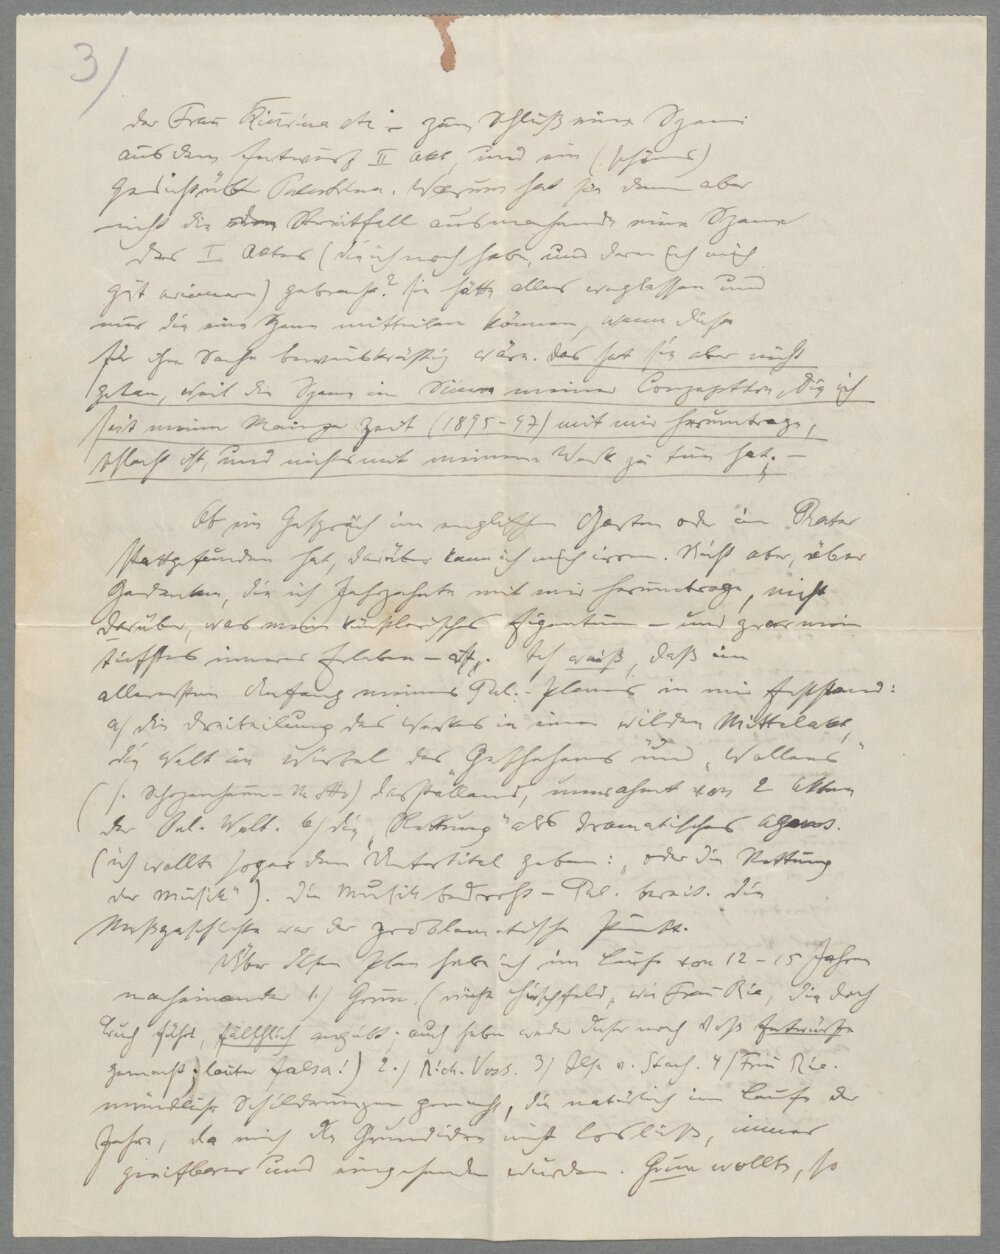 3/
der Frau – zum Schluß eine Szene
aus dem Entwurf II Akt, und ein (schönes)
Gedicht über Palestrina. Warum hat sie denn aber
nicht die den Streitfall ausmachende eine Szene
des I Aktes (die ich noch habe, und deren ich mich
gut erinnere) gebracht? Sie hätte alles weglassen und
nur die eine Szene mitteilen können, wenn diese
für ihre Sache beweiskräftig wäre. Das hat sie aber nicht
getan, weil die Szene im Sinne meiner Conzeption, die ich
seit meiner Mainzer Zeit (1895–97) mit mir herumtrage,
schlecht ist, und nichts mit meinem Werk zu tun hat. –
Ob ein Gespräch im englischen Garten oder im Prater
stattgefunden hat, darüber kann ich mich irren. Nicht aber, über
Gedanken, die ich Jahrzehnte mit mir herumtrage, nicht
darüber, was mein künstlerisches Eigentum – und zwar mein
tiefstes inneres Erleben – ist. Ich weiß, daß im
allerersten Anfang meines Pal.-Planes in mir feststand:
a) die Dreiteilung des Werkes in einen wilden Mittelakt,
die Welt im Wirbel des "Geschehens" und "Wollens"
(s. Schopenhauer-Motto) darstellend, umrahmt von 2 Akten
der Pal. Welt. b) die "Rettung" als dramatisches Agens.
(ich wollte sogar den Untertitel geben: "oder die Rettung
der Musik"). Die Musik bedroht – Pal. Die
Meßgeschichte war der problematische Punkt.
Über diesen Plan habe ich im Laufe von 12–15 Jahren
nacheinander 1.) Grun. (nicht Hirschfeld, wie Frau Ric, die doch
Buch führt, fälschlich angibt; auch haben weder dieser noch Voß Entwürfe
gemacht; lauter falsa!) 2.) Rich. Voss. 3) Ilse v. Stach. 4) Frau Ric.
mündliche Schilderungen gemacht, die natürlich im Laufe der
Jahre, da mich die Grundidee nicht losließ, immer
greifbarer und eingehender wurden. Grun wollte, so